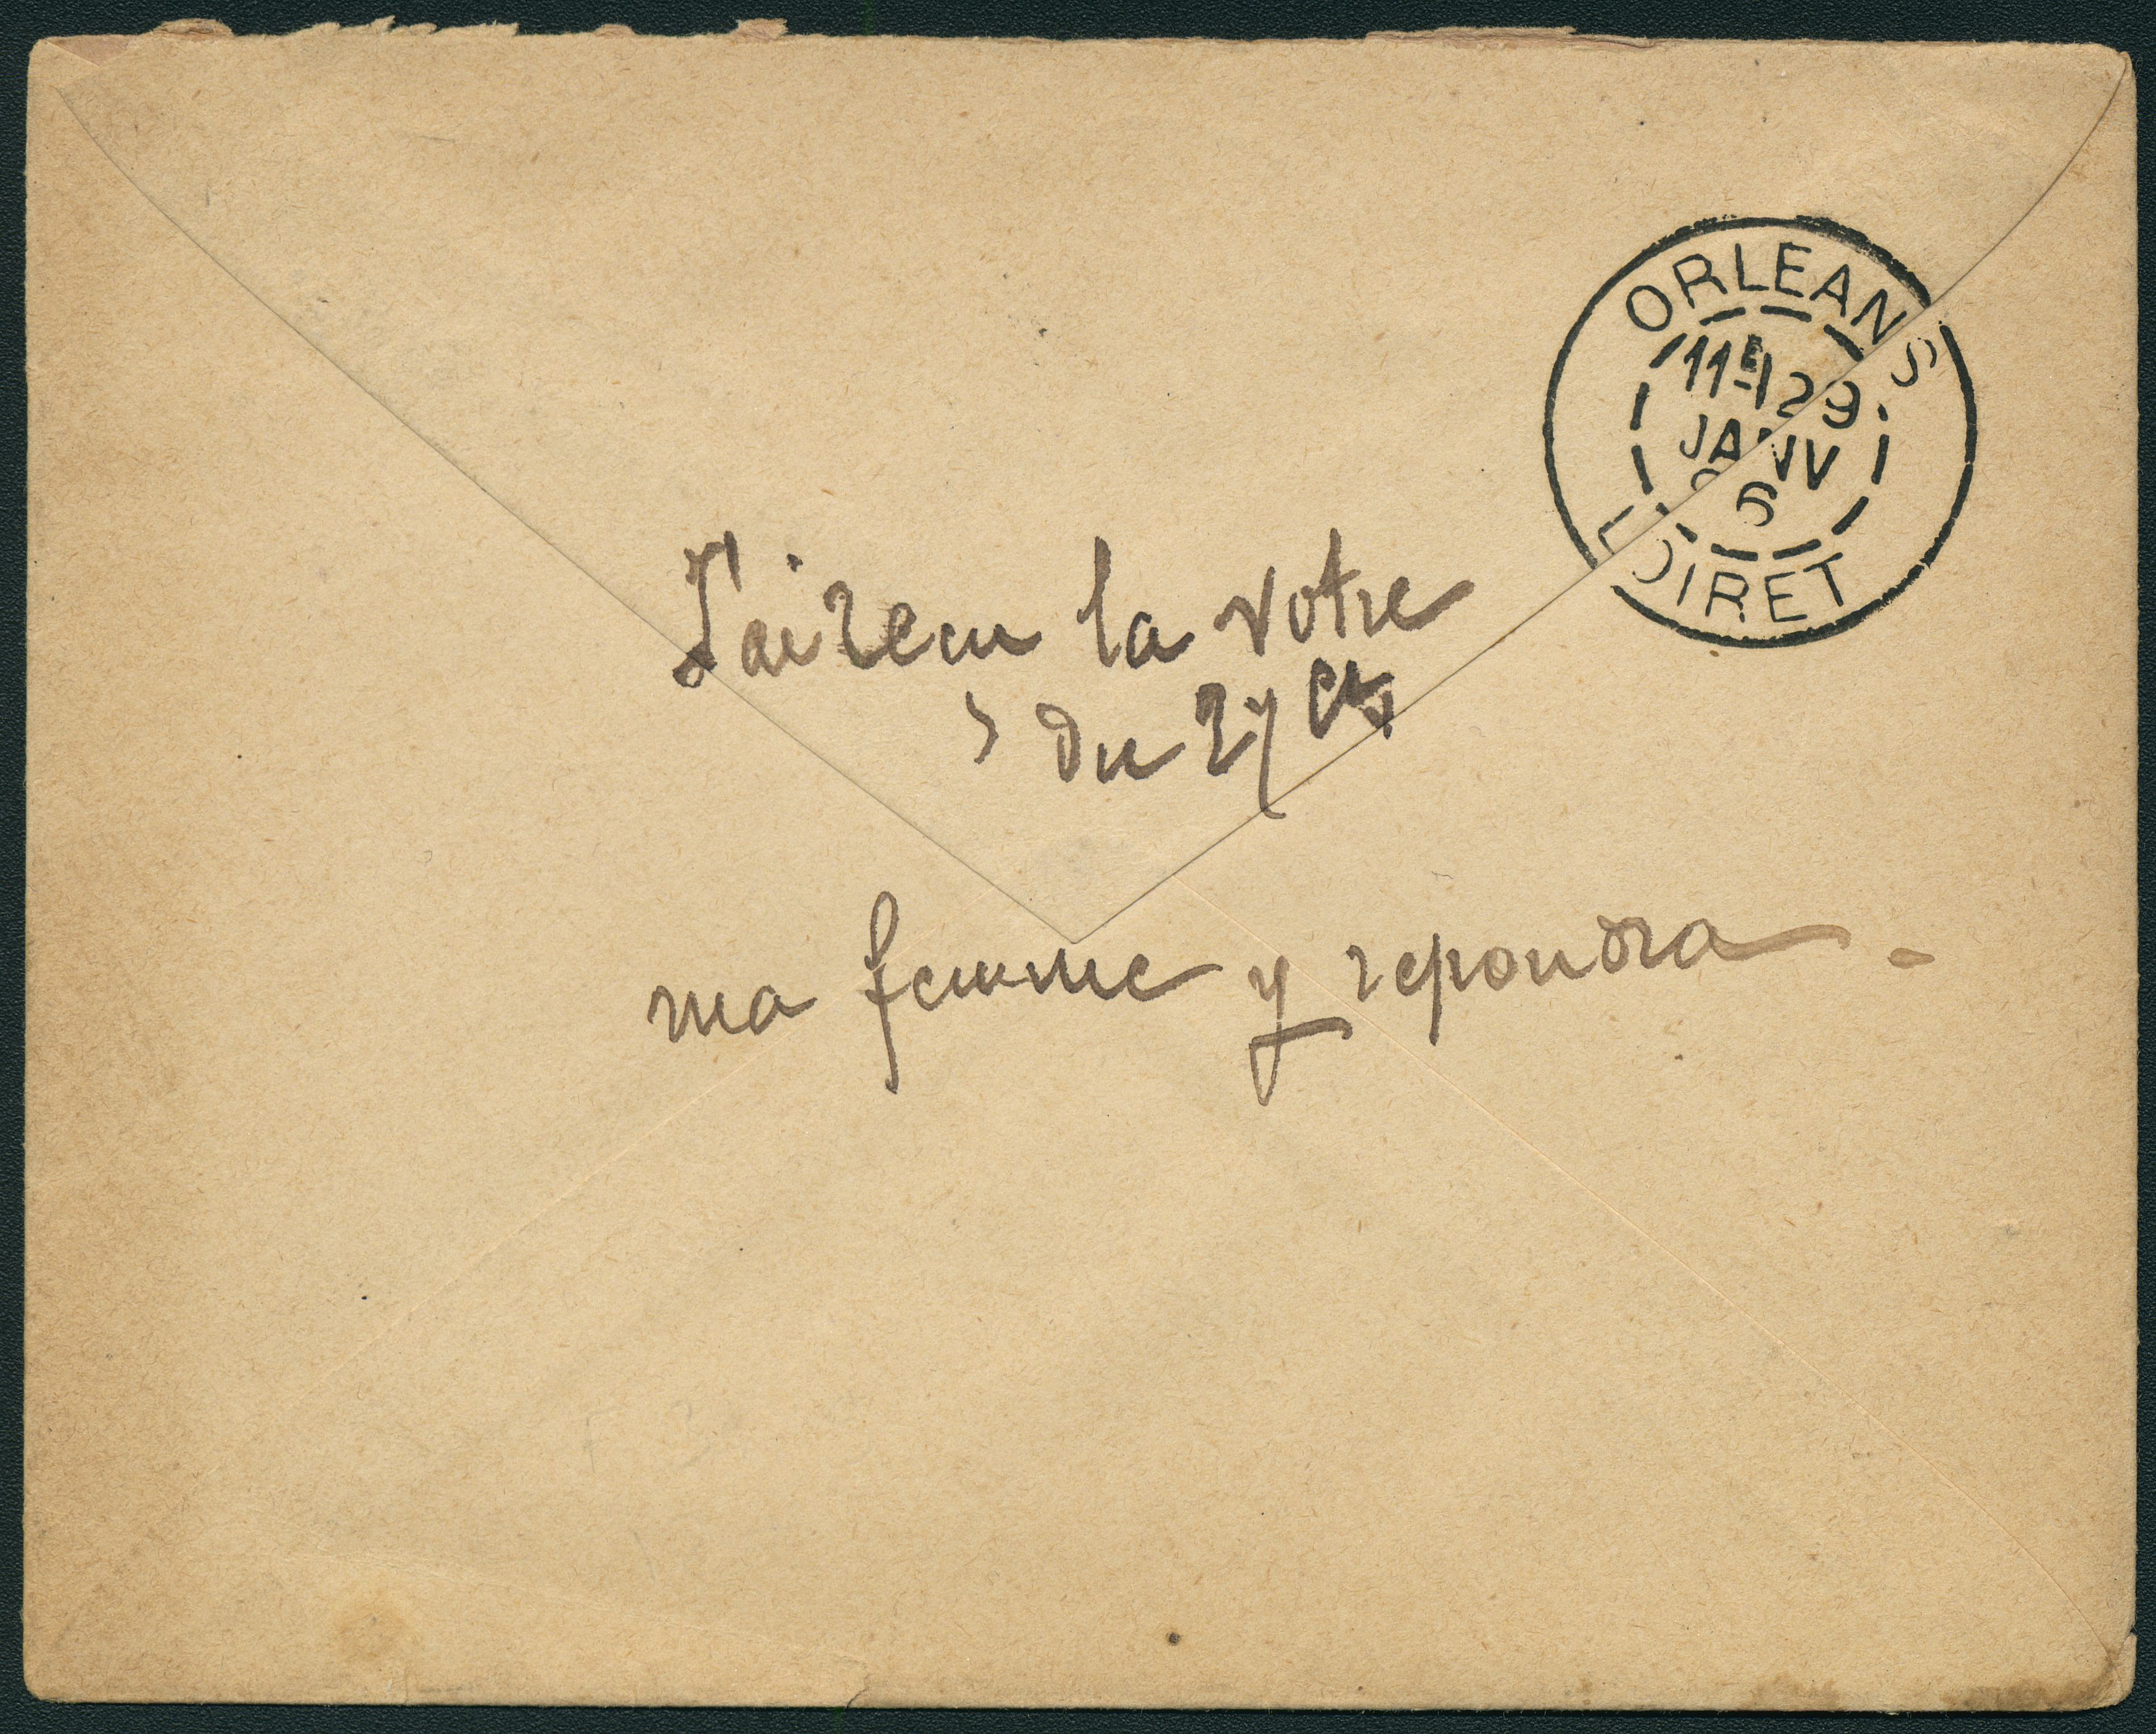 ORLEANS
11E 29
JANV
96
LOIRET
J'ai recu la votre
du 27 Ct
ma femme y repondra -